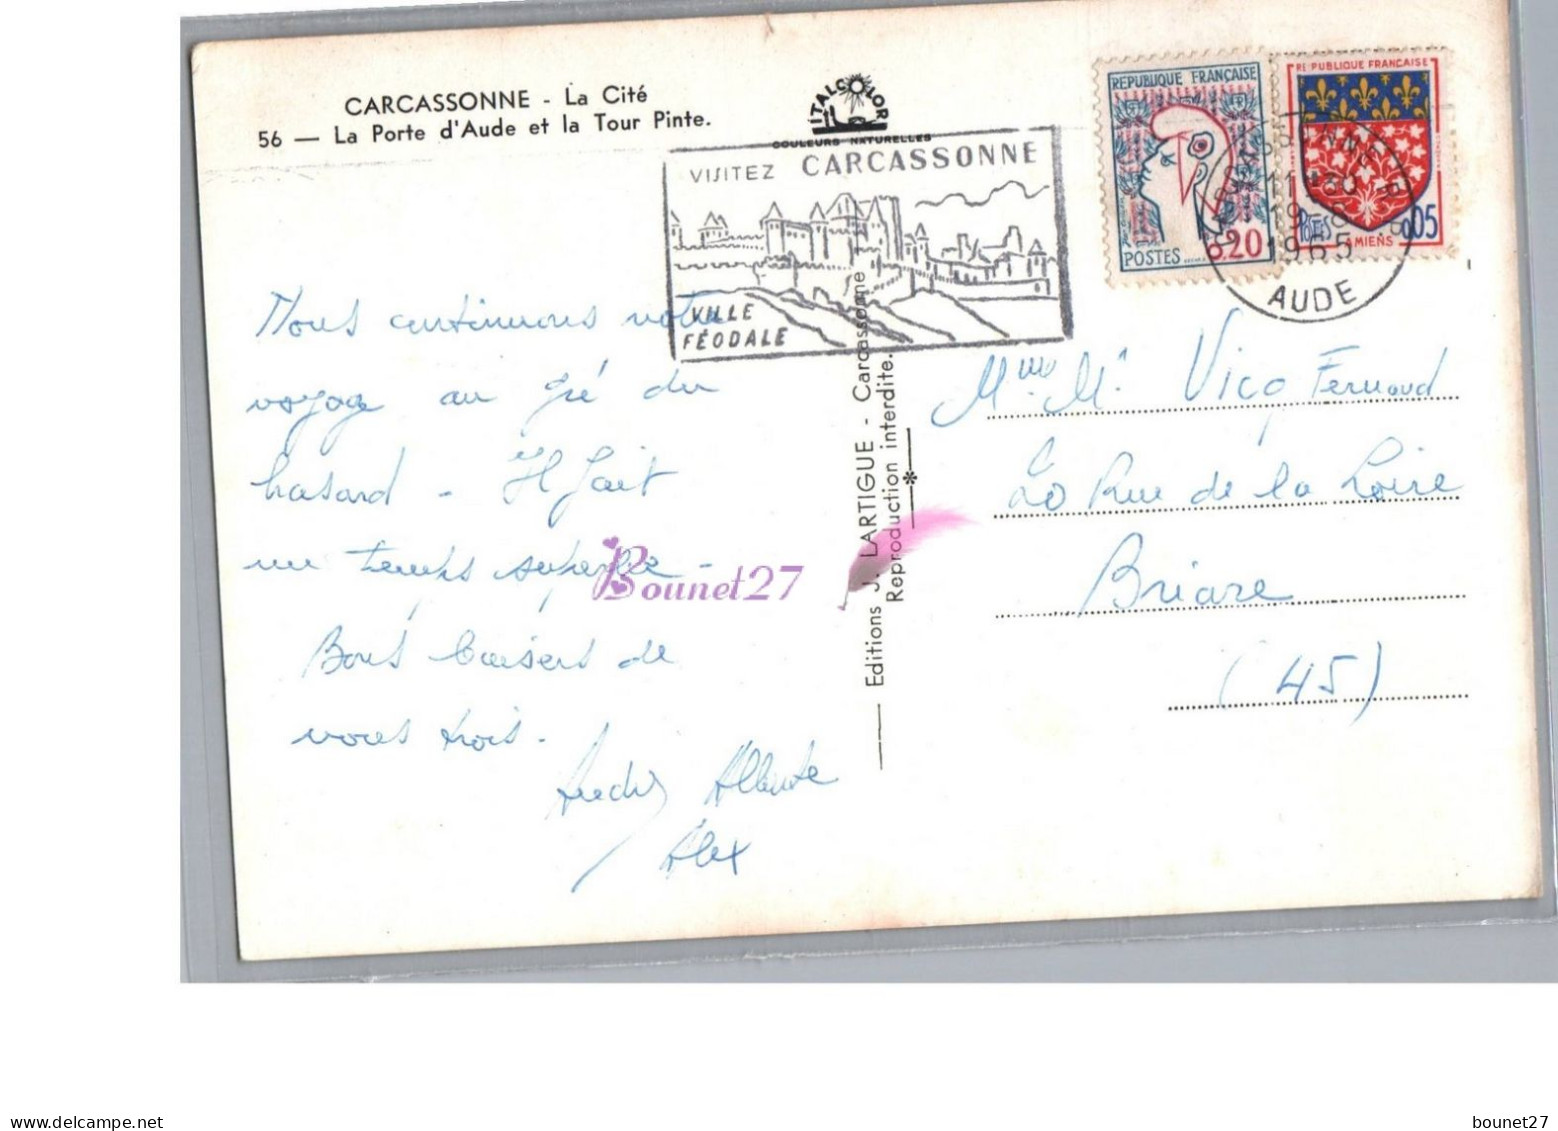 CARCASSONNE - La Cité
56 — La Porte d'Aude et la Tour Pinte.
ITALCOLOR
COULEURS NATURELLES
VISITEZ CARCASSONNE
VILLE
FÉODALE
REPUBLIQUE FRANÇAISE
POSTES 0.20
REPUBLIQUE FRANÇAISE
POSTES 0,05
AMIENS
11H30
1965
AUDE
Nous continuons notre
voyage au gré du
hasard - Il fait
un temps superbe -
Bons baisers de
nous trois.
Alex
Editions J. LARTIGUE - Carcassonne
Reproduction interdite.
Mme Mr Vicq Fernand
Rue de la Loire
Briare
(45)
Bounet27
www.delcampe.net
bounet27